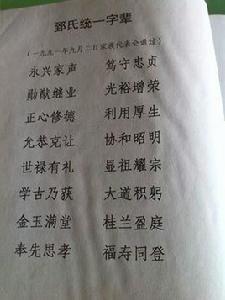 郅氏统一字辈
(一九九一年九月二日家族代表会通过)
永兴家声 笃守忠贞
勋猷继业 光裕增荣
正心修德 利用厚生
允恭克让 协和昭明
世禄有礼 显祖耀宗
学古乃获 大道积躬
金玉满堂 桂兰盈庭
奉先思孝 福寿同登